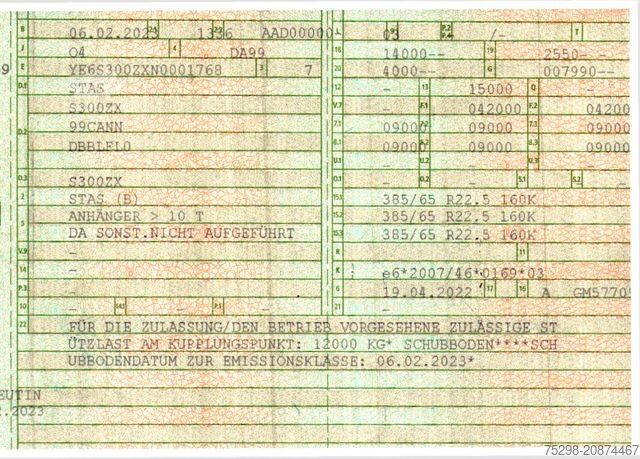 B 06.02.2023 1336 AAD00000 L 03 P.2 P.4 /- T
J O4 4 DA99 18 14000-- 19 2550--
E YE6S300ZXN0001768 3 7 20 4000-- G 007990--
D.1 STAS 12 - 13 15000 Q -
S300ZX V.7 - F.1 042000 F.2 04200
D.2 99CANN 7.1 09000 7.2 09000 7.3 09000
DBBLFL0 8.1 09000 8.2 09000 8.3 09000
U.1 - U.2 - U.3 -
D.3 S300ZX O.1 - O.2 - S.1 - S.2 -
2 STAS (B) 15.1 385/65 R22.5 160K
5 ANHÄNGER > 10 T 15.2 385/65 R22.5 160K
DA SONST.NICHT AUFGEFÜHRT 15.3 385/65 R22.5 160K
V.9 - R - 11 -
14 - K e6*2007/46*0169*03
P.3 - 6 19.04.2022 17 16 A GM5770
10 - 14.1 - P.1 - 21 -
22 FÜR DIE ZULASSUNG/DEN BETRIEB VORGESEHENE ZULÄSSIGE ST
ÜTZLAST AM KUPPLUNGSPUNKT: 12000 KG* SCHUBBODEN****SCH
UBBODENDATUM ZUR EMISSIONSKLASSE: 06.02.2023*
EUTIN
.2023
75298-20874467